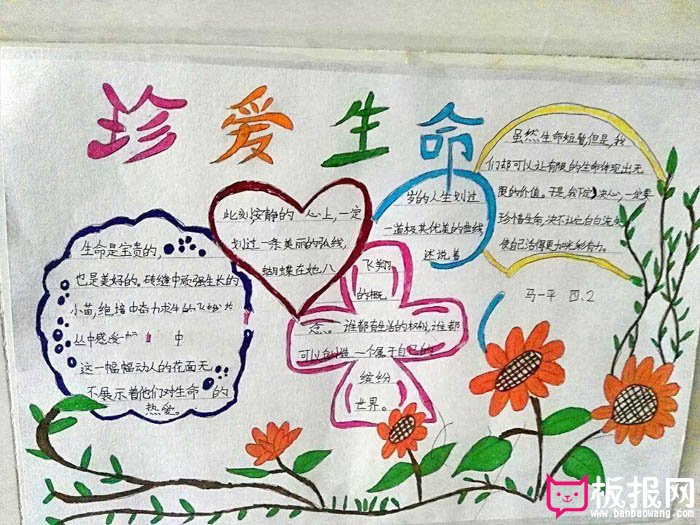 珍爱生命
生命是宝贵的,
也是美好的。砖缝中顽强生长的
小苗,绝境中奋力求生的飞蛾,花
丛中感受 中
这一幅幅动人的花面无
不展示着他们对生命 的
热爱。
此刻,安静的 心上,一定
划过一条美丽的弘线,
蝴蝶在她八
岁的人生划过
一道极其优美的曲线
述说着
飞翔
的概
念。谁都有生活的权利,谁都
可以创造一个属于自己的
缤纷
世界。
虽然生命短暂,但是,我
们却可以让有限的生命体现出无
限的价值。于是,我下定决心,一定要
珍惜生命,决不让它白白流失
使自己活得更加光彩有力。
马一平 四.2
板报网
www.banbaowang.com